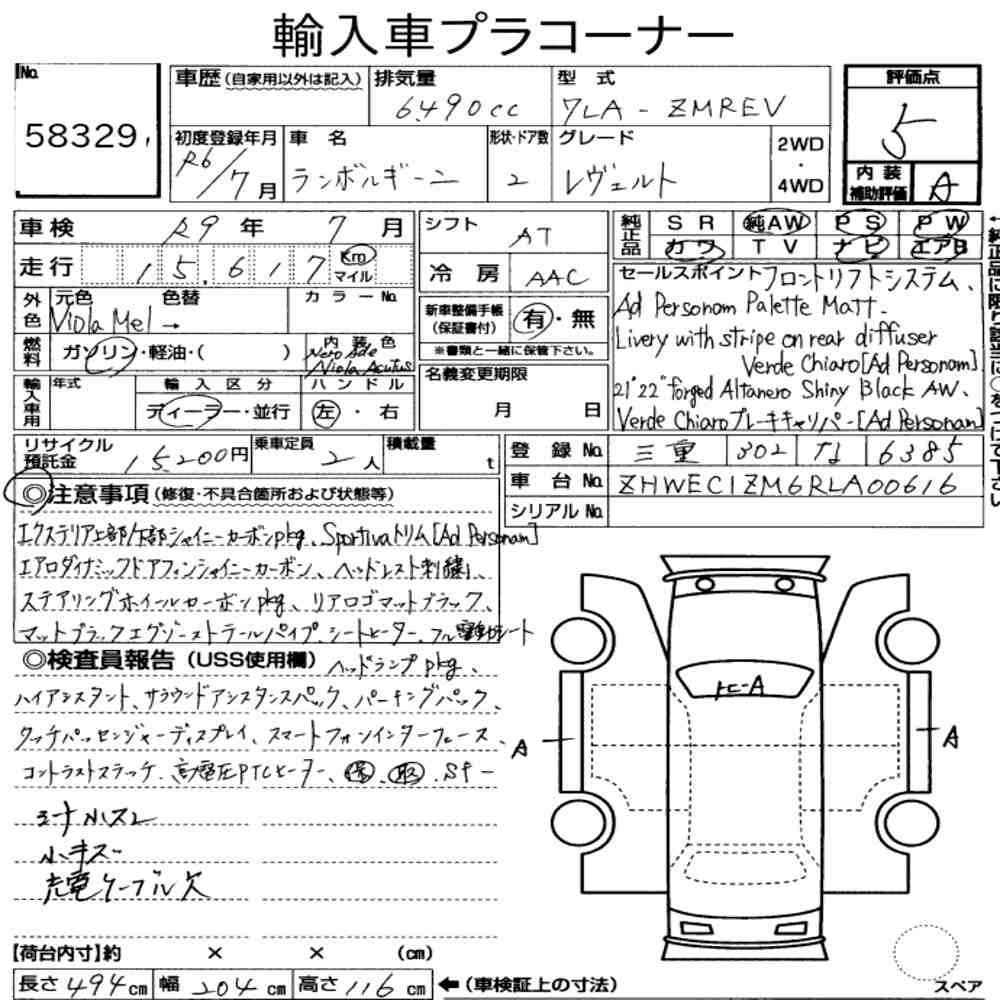 輸入車プラコーナー
No.
58329
車歴(自家用以外は記入)
排気量
6490cc
型 式
7LA - ZMREV
評価点
5
内装補助評価
A
初度登録年月
R6/7月
車 名
ランボルギーニ
形状・ドア数
2
グレード
レヴェルト
2WD
・
4WD
車検 R9 年 7 月
走行 15,617 Km マイル
シフト AT
冷 房 AAC
純正品 SR 純AW PS PW
カワ TV ナビ エアB
外色 元色 色替 カラーNo.
Viola Mel →
燃料 ガソリン・軽油・( )
内装色
Nero Ade
/Viola Acutus
新車整備手帳
(保証書付)
有・無
※書類と一緒に保管下さい。
輸入車用 年式 輸入区分 ハンドル
ディーラー・並行 左・右
名義変更期限
月 日
セールスポイント フロントリフトシステム、
Ad Personam Palette Matt.
Livery with stripe on rear diffuser
Verde Chiaro[Ad Personam]
21" 22" forged Altanero Shiny Black AW、
Verde Chiaro ブレーキキャリパー[Ad Personam]
リサイクル預託金 15200円
乗車定員 2人
積載量 t
登 録 No. 三重 302 な 6385
車 台 No. ZHWEC1ZM6RLA00616
シリアル No.
◎注意事項(修復・不具合箇所および状態等)
エクステリア上部/下部シャイニーカーボンpkg、Sportivaトリム[Ad Personam]
エアロダイナミックドアフィンシャイニーカーボン、ヘッドレスト刺繍、
ステアリングホイールカーボンpkg、リアロゴマットブラック、
マットブラックエグゾーストテールパイプ、シートヒーター、フル電動シート
◎検査員報告(USS使用欄) ヘッドランプpkg、
ハイアシスタント、サラウンドアシスタンスパック、パーキングパック、
タッチパッセンジャーディスプレイ、スマートフォンインターフェース、
コントラストステッチ、高電圧PTCヒーター、保、取、Sキー
シート小スレ
小キズ
充電ケーブル欠
A
A
【荷台内寸】約 × × (cm)
長さ 494 cm 幅 204 cm 高さ 116 cm ←(車検証上の寸法)
スペア